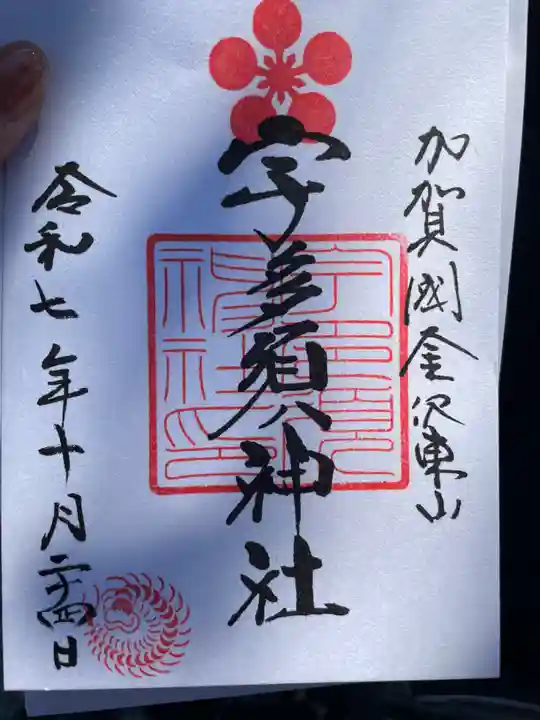 加賀國金沢東山
宇多須神社
令和七年十月二十四日